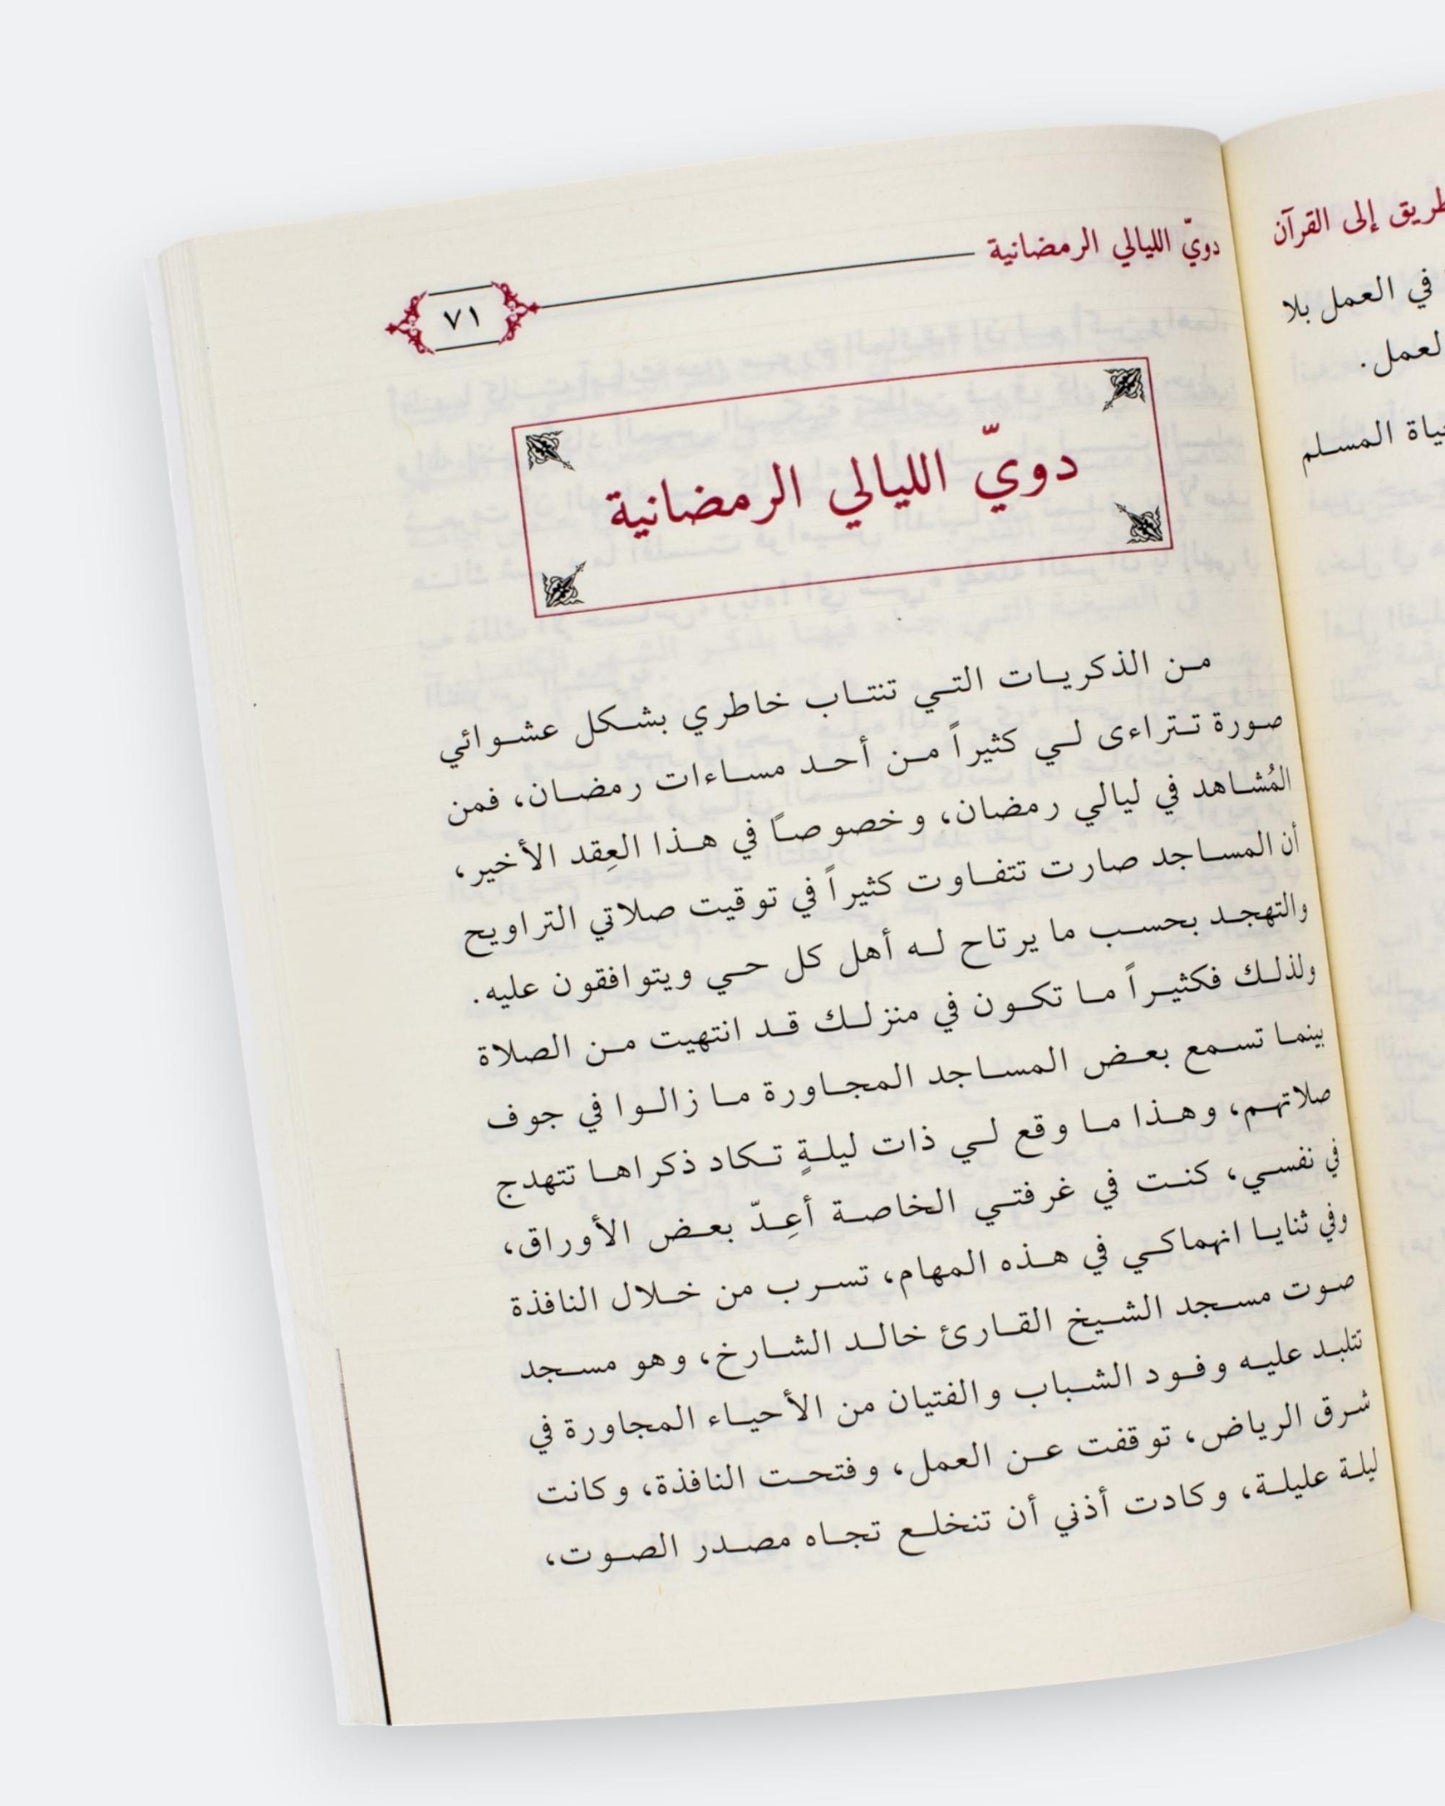 دويّ الليالي الرمضانية
٧١
دويّ الليالي الرمضانية
من الذكريات التي تنتاب خاطري بشكل عشوائي
صورة تتراءى لي كثيراً من أحد مساءات رمضان، فمن
المُشاهد في ليالي رمضان، وخصوصاً في هذا العِقد الأخير،
أن المساجد صارت تتفاوت كثيراً في توقيت صلاتي التراويح
والتهجد بحسب ما يرتاح له أهل كل حي ويتوافقون عليه.
ولذلك فكثيراً ما تكون في منزلك قد انتهيت من الصلاة
بينما تسمع بعض المساجد المجاورة ما زالوا في جوف
صلاتهم، وهذا ما وقع لي ذات ليلةٍ تكاد ذكراها تتهدج
في نفسي، كنت في غرفتي الخاصة أعِدّ بعض الأوراق،
وفي ثنايا انهماكي في هذه المهام، تسرب من خلال النافذة
صوت مسجد الشيخ القارئ خالد الشارخ، وهو مسجد
تتلبد عليه وفود الشباب والفتيان من الأحياء المجاورة في
شرق الرياض، توقفت عن العمل، وفتحت النافذة، وكانت
ليلة عليلة، وكادت أذني أن تنخلع تجاه مصدر الصوت،
إلى القرآن
في العمل بلا
المسلم